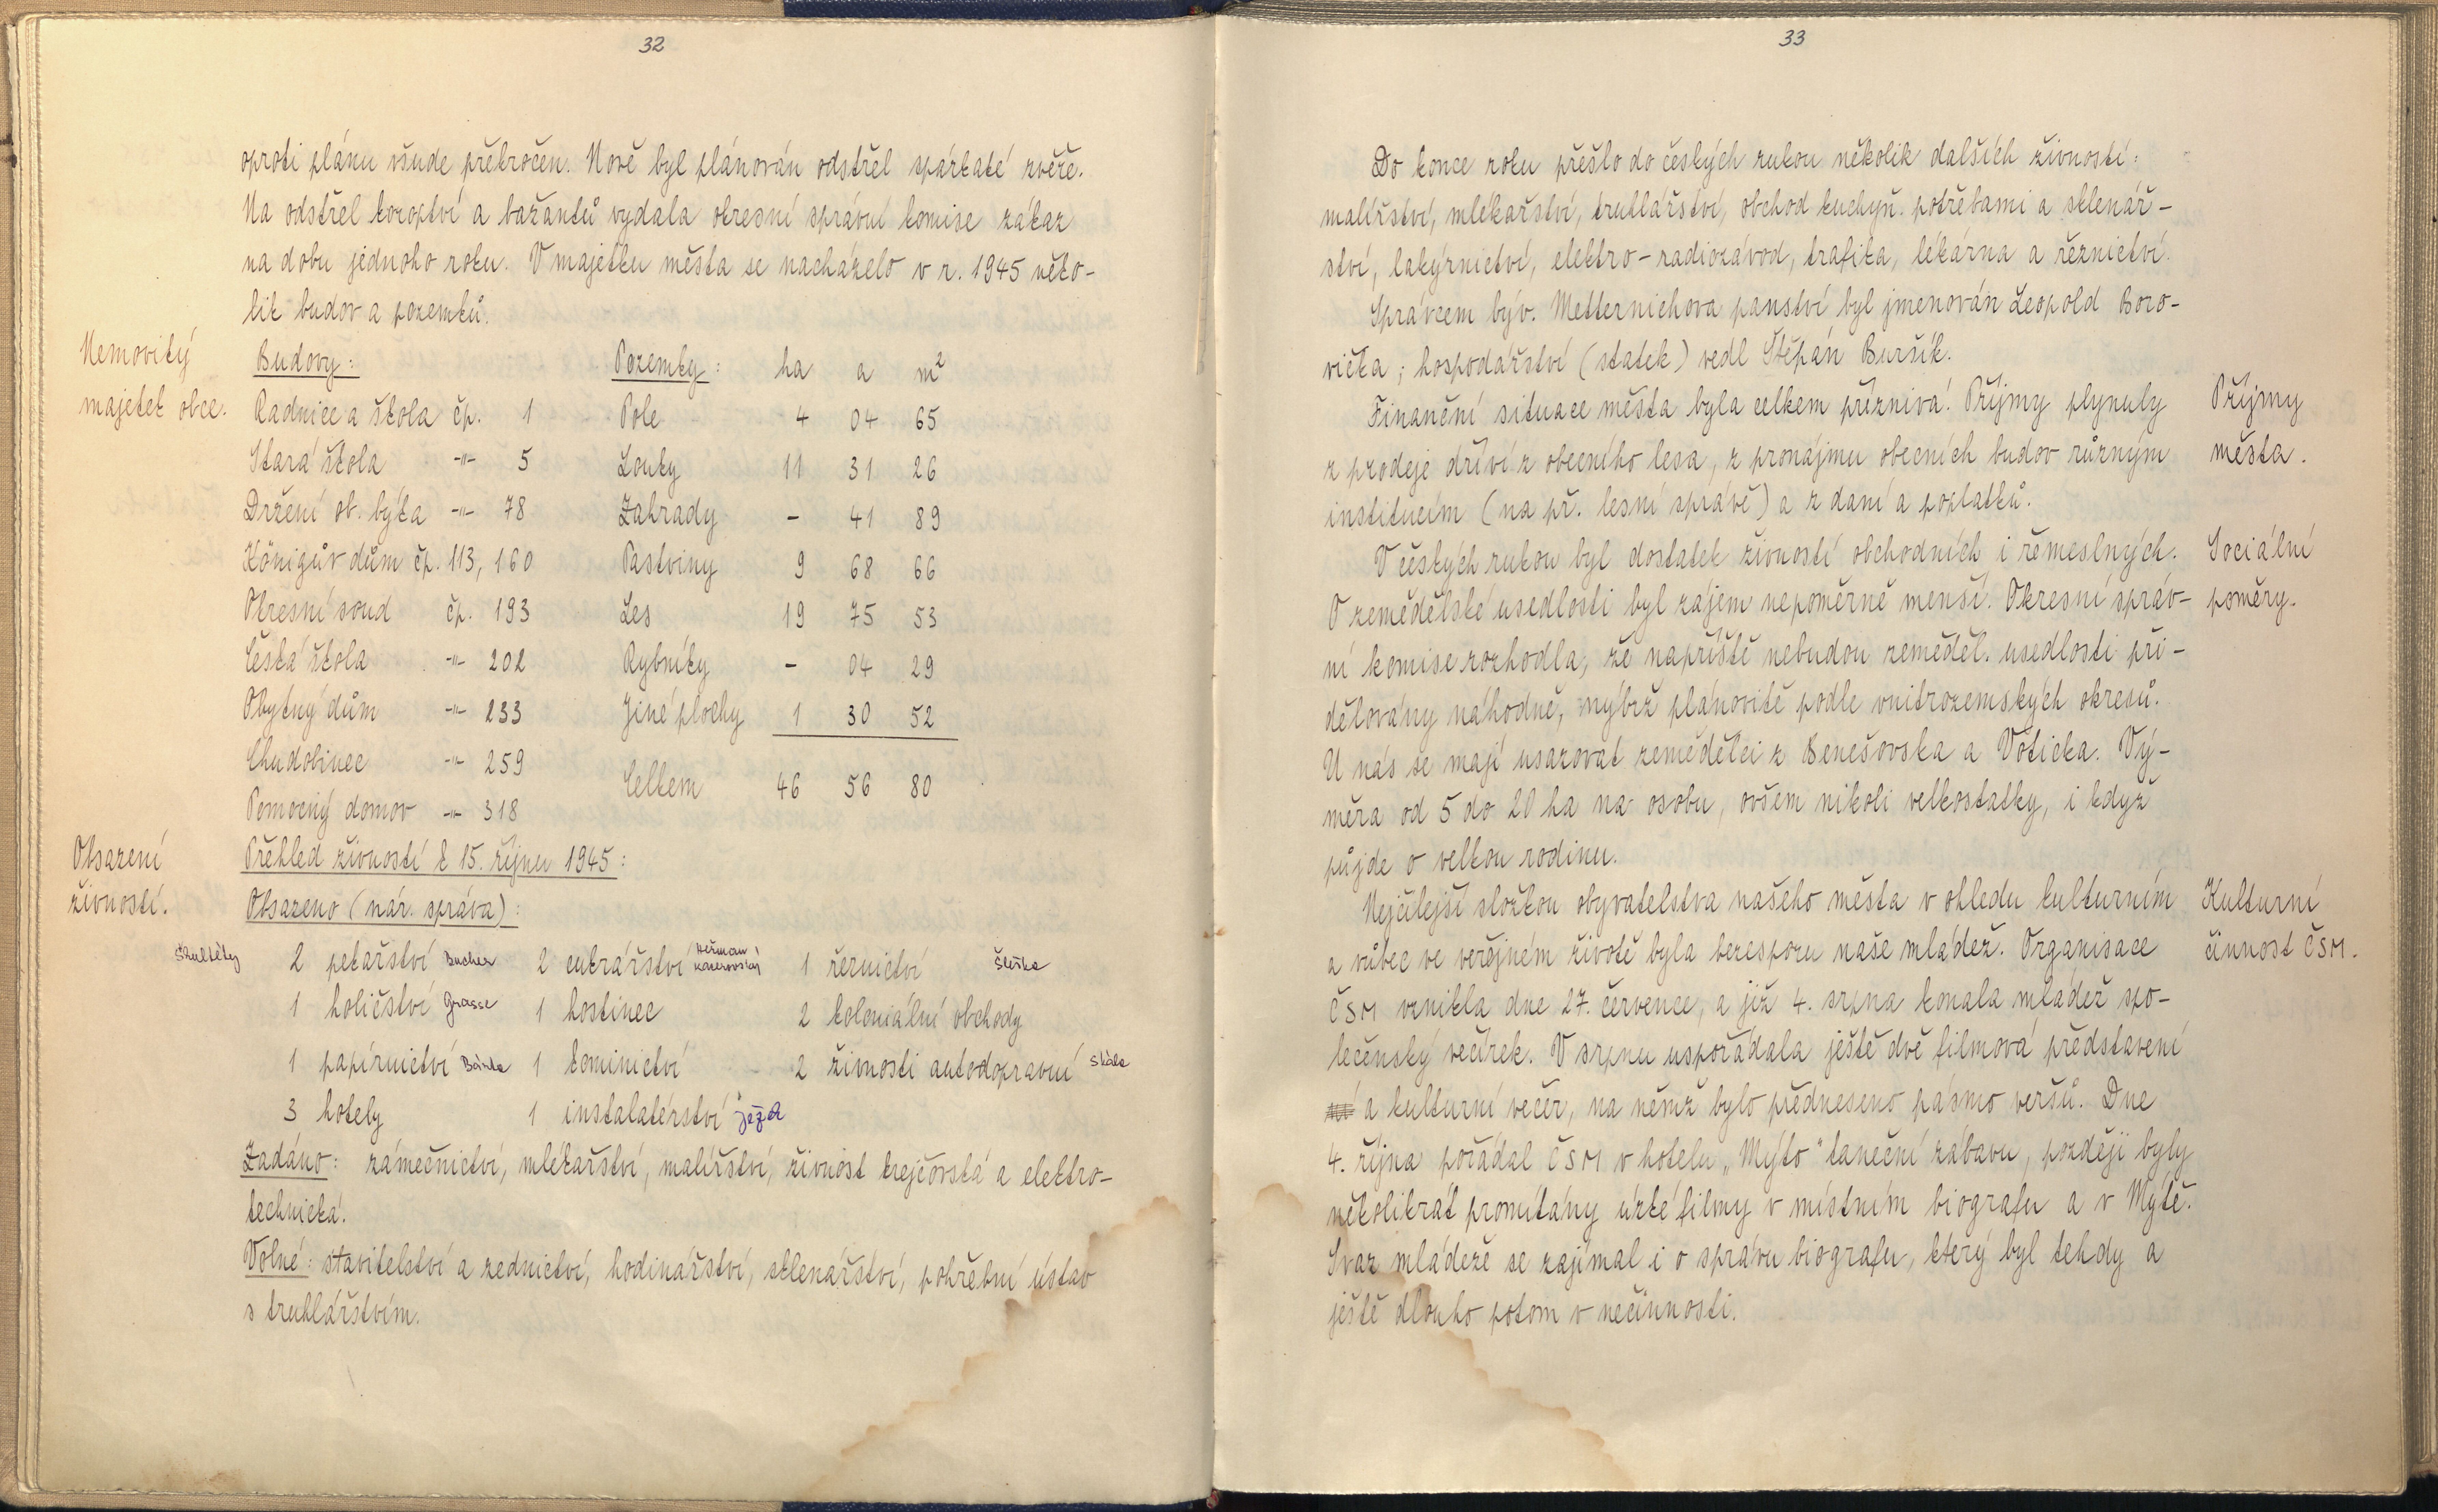 32
oproti plánu všude překročen. Nově byl plánován odstřel spárkaté zvěře.
Na odstřel koroptví a bažantů vydala okresní správní komise zákaz
na dobu jednoho roku. V majetku města se nacházelo v r. 1945 něko-
lik budov a pozemků.
Nemovitý
majetek obce.
Budovy: Pozemky: ha a m²
Radnice a škola čp. 1 Pole 4 04 65
Stará škola -"- 5 Louky 11 31 26
Držení ob. býka -"- 78 Zahrady - 41 89
Königův dům čp. 113, 160 Pastviny 9 68 66
Okresní soud čp. 193 Les 19 75 53
Česká škola -"- 202 Rybníky - 04 29
Obytný dům -"- 233 Jiné plochy 1 30 52
Chudobinec -"- 259 Celkem 46 56 80
Pomocný domov -"- 318
Obsazení
živností.
Přehled živností k 15. říjnu 1945:
Obsazeno (nár. správa):
Skultéty 2 pekařství Bucher 2 cukrářství Heřman 1 řeznictví
1 holičství Grasse 1 hostinec 2 koloniální obchody
1 papírnictví 1 kominictví 2 živnosti autodopravní Skála
3 hotely 1 instalatérství Ježek
Zadáno: zámečnictví, mlékařství, malířství, živnost krejčovská a elektro-
technická.
Volné: stavitelství a zednictví, hodinářství, sklenářství, pohřební ústav
s truhlářstvím.
33
Do konce roku přešlo do českých rukou několik dalších živností:
malířství, mlékařství, truhlářství, obchod kuchyň. potřebami a sklenář-
ství, lakýrnictví, elektro-radiozávod, trafika, lékárna a řeznictví.
Správcem býv. Metternichova panství byl jmenován Leopold Boro-
vička; hospodářství (statek) vedl Štěpán Buršík.
Finanční situace města byla celkem příznivá. Příjmy plynuly
z prodeje dříví z obecního lesa, z pronájmu obecních budov různým
institucím (na př. lesní správě) a z daní a poplatků.
Příjmy
města.
V českých rukou byl dostatek živností obchodních i řemeslných.
O zemědělské usedlosti byl zájem nepoměrně menší. Okresní správ-
ní komise rozhodla, že napříště nebudou zeměděl. usedlosti při-
dělovány náhodně, nýbrž plánovitě podle vnitrozemských okresů.
U nás se mají usazovat zemědělci z Benešovska a Voticka. Vý-
měra od 5 do 20 ha na osobu, ovšem nikoli velkostatky, i když
půjde o velkou rodinu.
Sociální
poměry.
Nejčilejší složkou obyvatelstva našeho města v ohledu kulturním
a vůbec ve veřejném životě byla bezesporu naše mládež. Organisace
ČSM vznikla dne 27. července, a již 4. srpna konala mládež spo-
lečenský večírek. V srpnu uspořádala ještě dvě filmová představení
a kulturní večer, na němž bylo předneseno pásmo veršů. Dne
4. října pořádal ČSM v hotelu „Mýto" taneční zábavu, později byly
několikrát promítány úzké filmy v místním biografu a v Mýtě.
Svaz mládeže se zajímal i o správu biografu, který byl tehdy a
ještě dlouho potom v nečinnosti.
Kulturní
činnost ČSM.